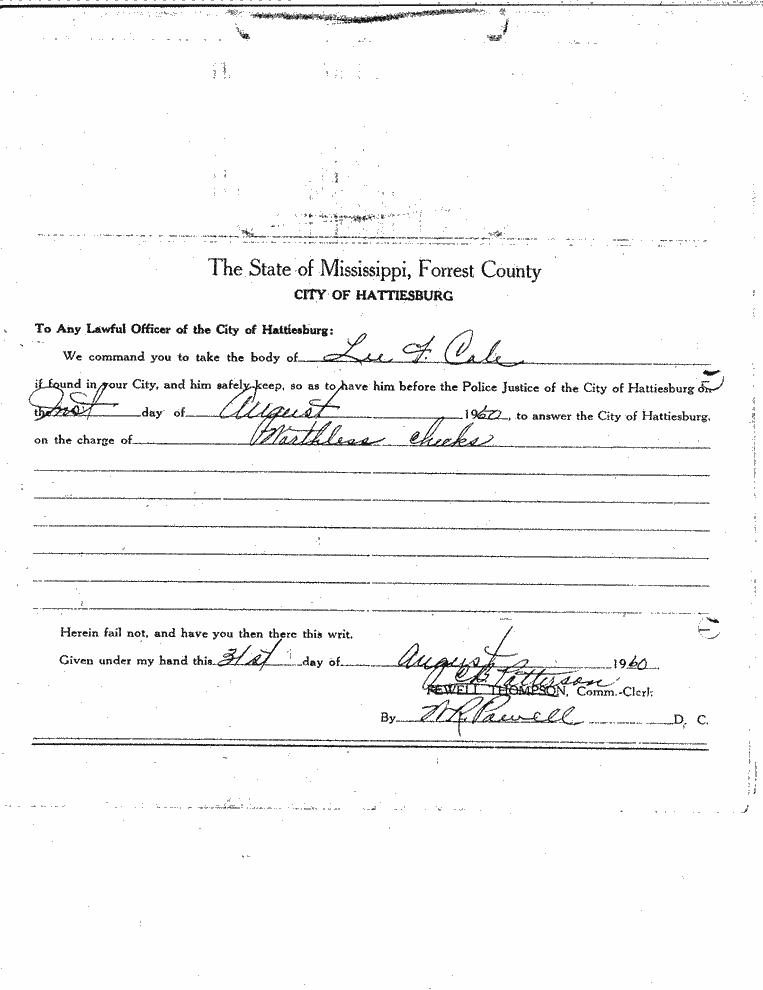 The State of Mississippi, Forrest County
CITY OF HATTIESBURG
To Any Lawful Officer of the City of Hattiesburg:
We command you to take the body of Lee F. Cale
if found in your City, and him safely keep, so as to have him before the Police Justice of the City of Hattiesburg on
the Inst day of August 1960, to answer the City of Hattiesburg,
on the charge of Worthless checks
Herein fail not, and have you then there this writ.
Given under my hand this 31st day of August 1960
Patterson
REWELL THOMPSON, Comm.-Clerk
By W.R. Powell D. C.